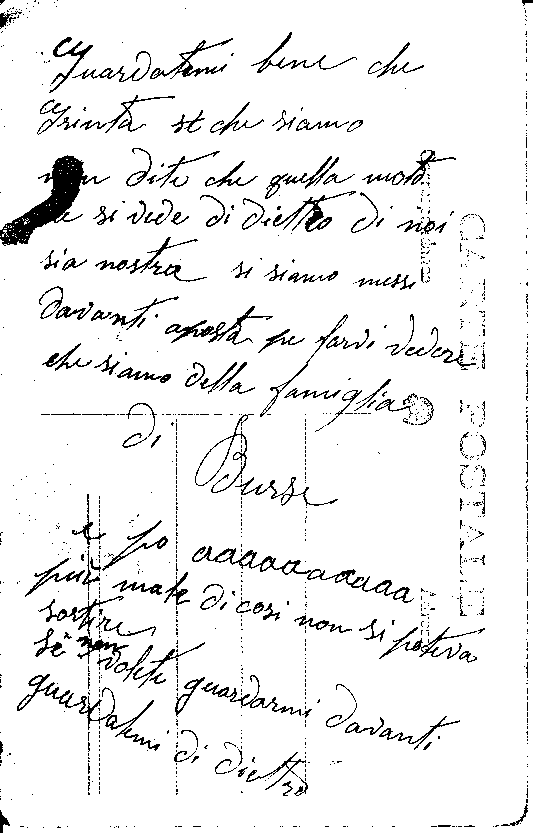 Guardatemi bene che
Grinta st che siamo
non dite che quella moto
che si vede di dietro di noi
sia nostra si siamo messi
davanti aposta pe farvi vedere
che siamo della famiglia
di
Burse
e po aaaaaaaaaaa
piu male di cosi non si poteva
sortire
se non volete guardarmi davanti
guardatemi di dietro
CARTE POSTALE